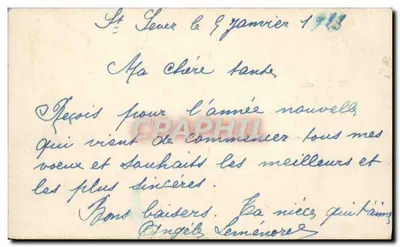 St Sever le 5 Janvier 1923
Ma chère tante
Reçois pour l'année nouvelle
qui vient de commencer tous mes
voeux et souhaits les meilleurs et
les plus sincères.
Bons baisers. Ta nièce qui t'aime
Angèle